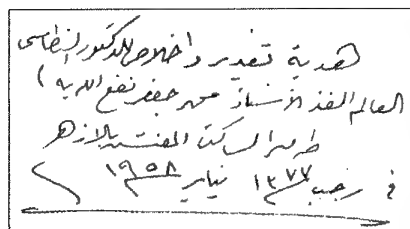 هدية تقدير وإخلاص للدكتور النطاسى
العالم الفذ الأستاذ محمد جعفر نفع الله به )
طه الساكت المفتش بالأزهر
فى رجب ١٣٧٧ يناير ١٩٥٨